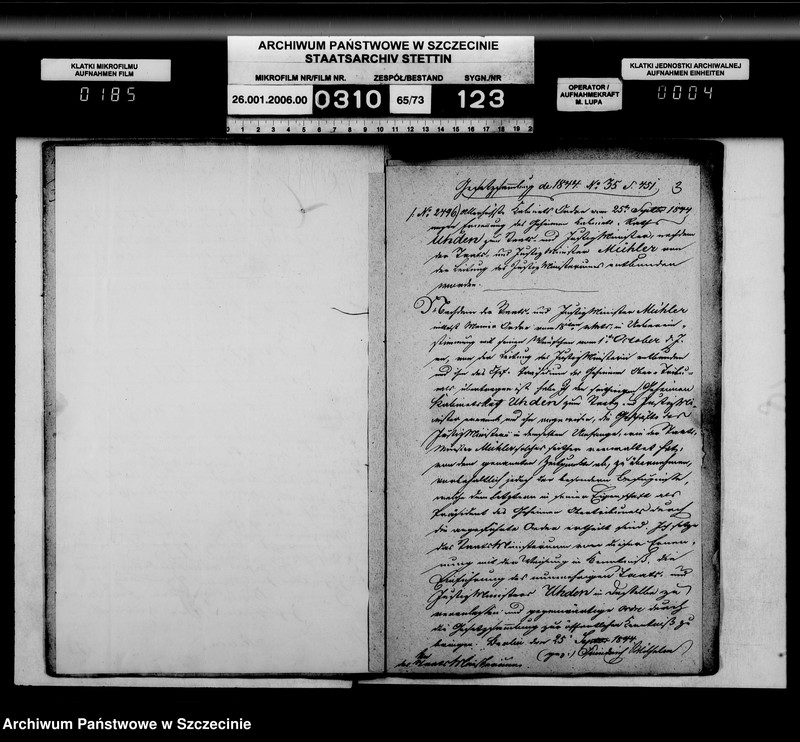 ARCHIWUM PAŃSTWOWE W SZCZECINIE
STAATSARCHIV STETTIN
KLATKI MIKROFILMU
AUFNAHMEN FILM
0185
MIKROFILM NR/FILM NR.
ZESPÓŁ/BESTAND
SYGN./NR
26.001.2006.00
0310
65/73
123
OPERATOR /
AUFNAHMEKRAFT
M. LUPA
KLATKI JEDNOSTKI ARCHIWALNEJ
AUFNAHMEN EINHEITEN
0004
0 1 2 3 4 5 6 7 8 9 10 11 12 13 14 15 16 17 18 19 2
Gesetzsammlung de 1844. No 35 S. 451. 3
(No 2496) Allerhöchste Kabinets Order vom 25n Septbr 1844
wegen Ernennung des Geheimen Kabinets-Raths
Uhden zum Staats- und Justiz Minister, nachdem
der Staats- und Justiz Minister Mühler von
der Leitung des Justiz Ministeriums entbunden
worden.
Nachdem der Staats- und Justiz Minister Mühler
mittelst Meiner Order vom in Ueberein-
stimmung mit seinen Wünschen vom 1n October d. J.
an, von der Leitung des Justiz Ministerii entbunden
und ihm das Chef-Praesidium des Geheimen Ober-Tribu-
nals übertragen ist, habe Ich den Geheimen
Kabinets Rath Uhden zum Staats- und Justiz Mi-
nister ernannt und ihn angewiesen, die Geschäfte des
Justiz Ministerii in demselben Umfange, wie der Staats-
Minister Mühler solche seither verwaltet hat,
von dem genannten Zeitpunkte ab, zu übernehmen,
vorbehaltlich jedoch der besondern Befugnisse,
welche dem letztern in seiner Eigenschaft als
Präsident des Geheimen Obertribunals durch
die angeführte Order ertheilt sind. Ich setze
das Staats Ministerium von dieser Ernen-
nung mit der Weisung in Kenntniß, die
Einführung des nunmehrigen Staats- und
Justiz Ministers Uhden in dasselbe zu
veranlassen und gegenwärtige Order durch
die Gesetzsammlung zur öffentlichen Kenntniß zu
bringen. Berlin den 25n Septbr 1844.
(gez.) Friedrich Wilhelm
das Staats Ministerium.
Archiwum Państwowe w Szczecinie